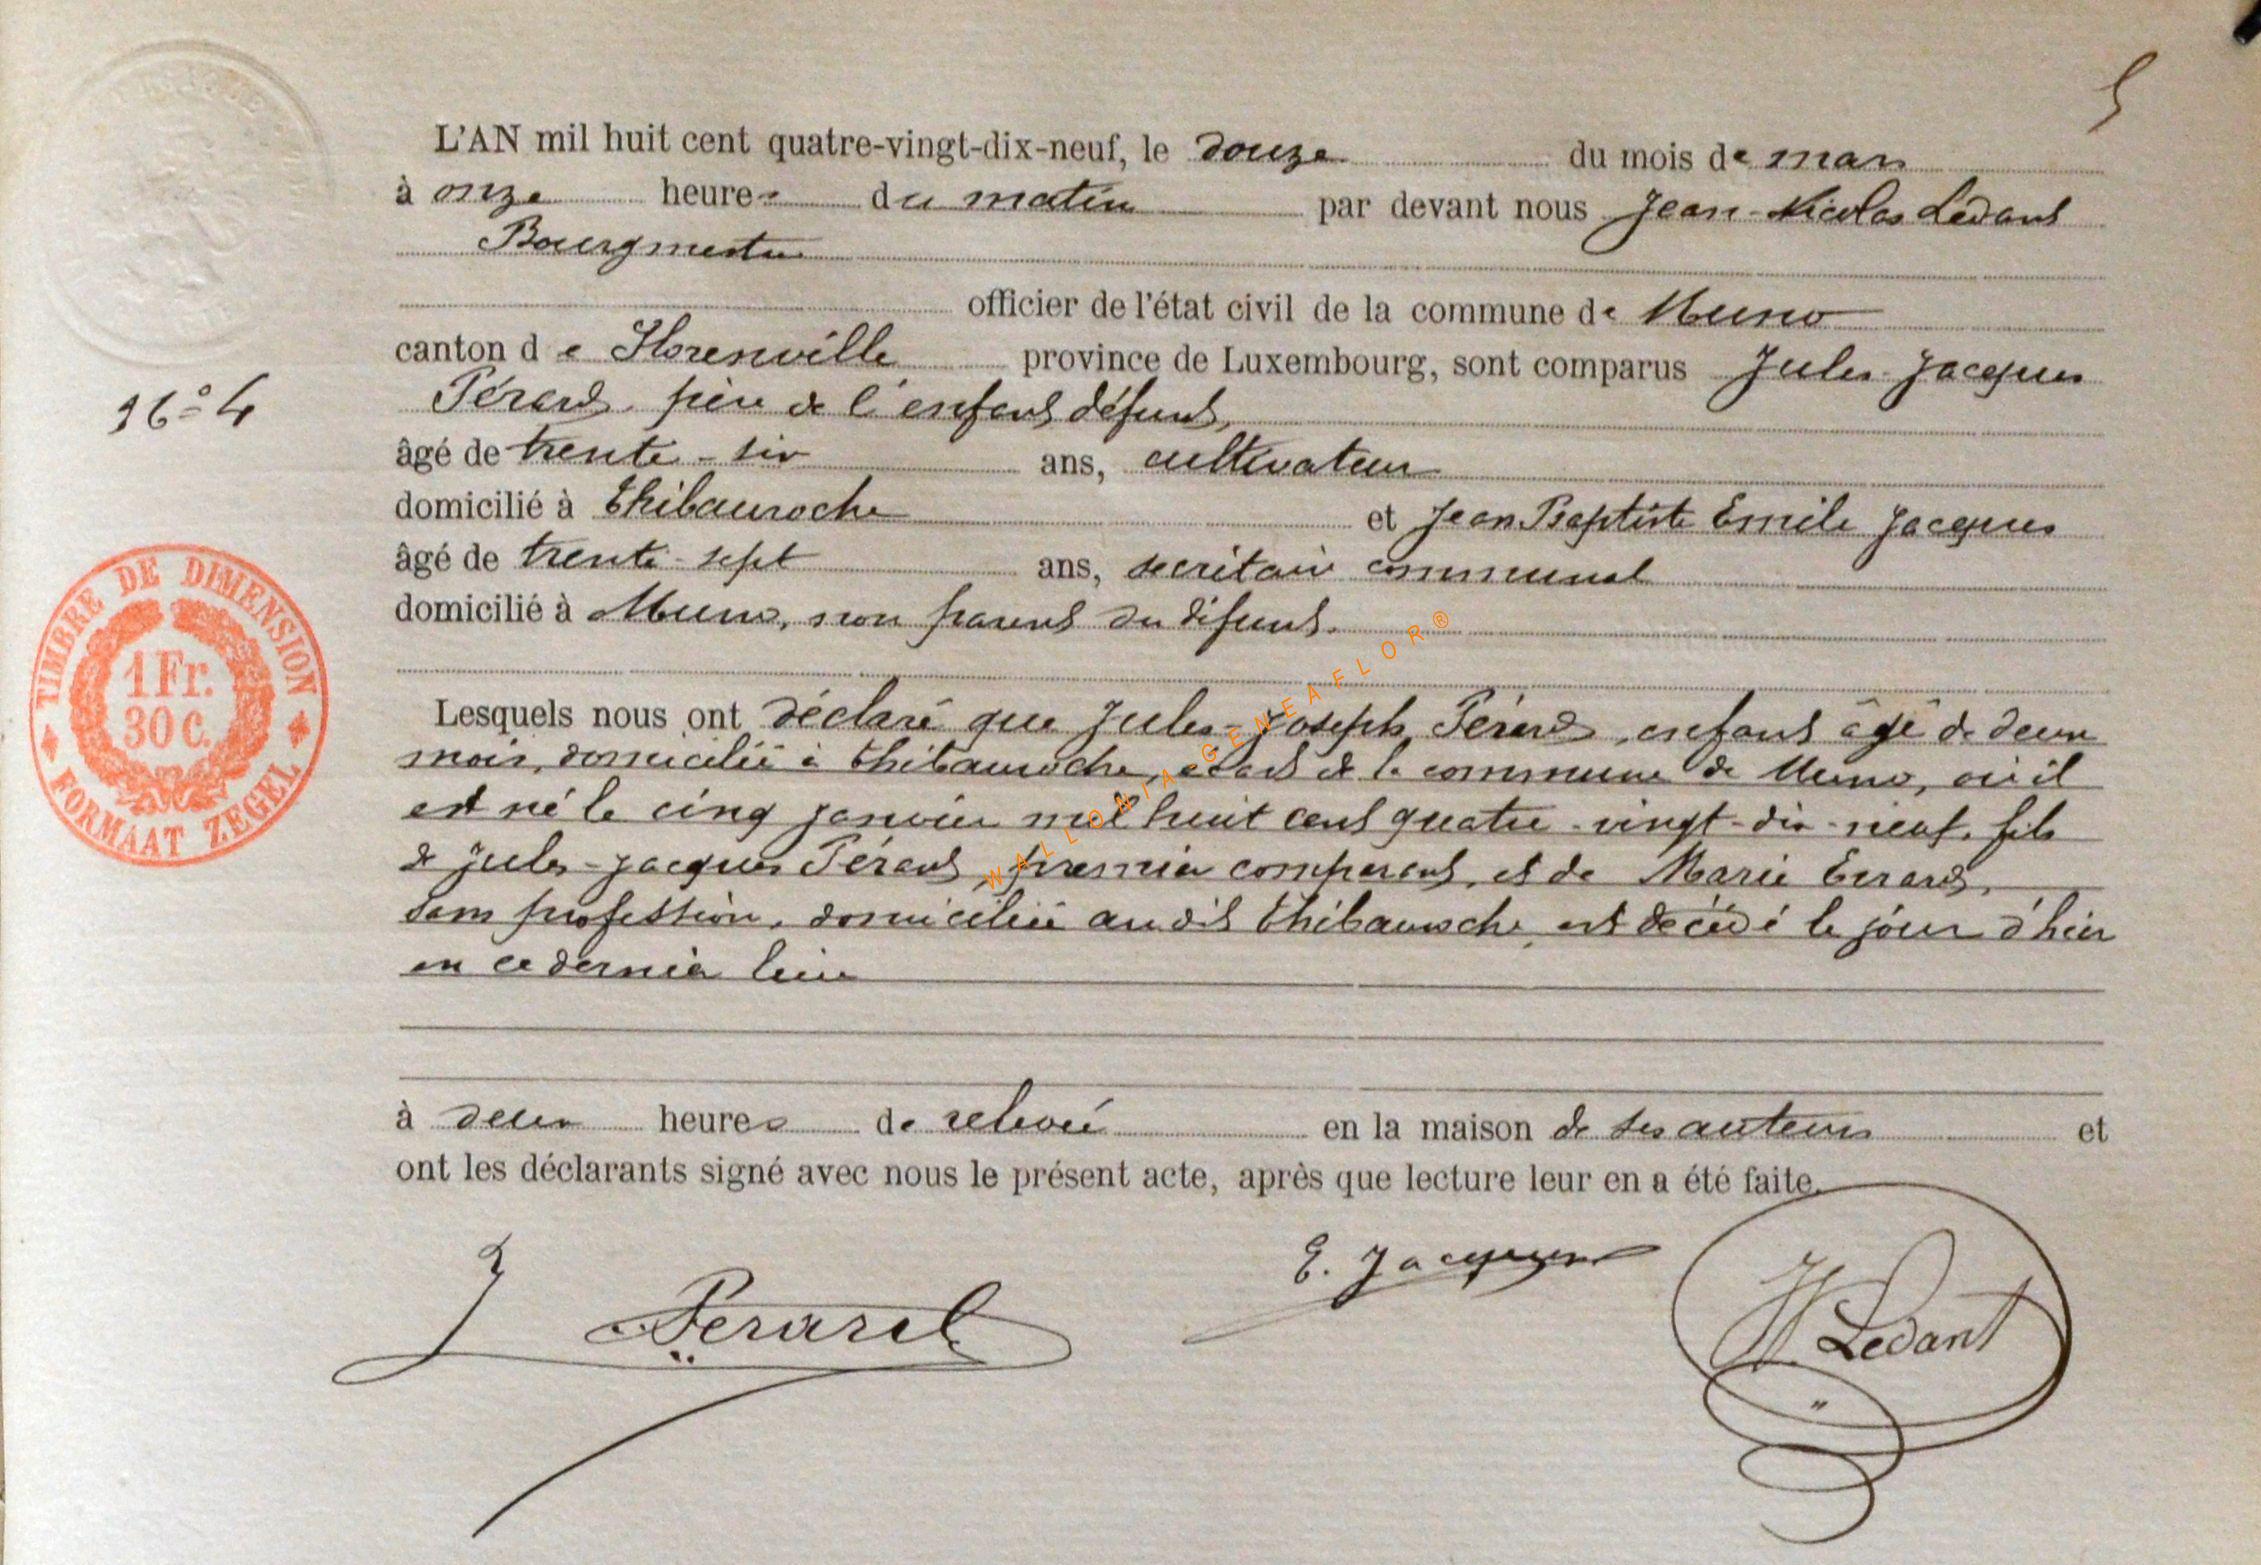 5
L'AN mil huit cent quatre-vingt-dix-neuf, le douze du mois de mars
à onze heures du matin par devant nous Jean-Nicolas Ledant
Bourgmestre
officier de l'état civil de la commune de Muno
canton de Florenville province de Luxembourg, sont comparus Jules-Jacques
Pérard, père de l'enfant défunt,
N° 4
âgé de trente-six ans, cultivateur
domicilié à Thibauroche et Jean Baptiste Emile Jacques
âgé de trente-sept ans, secrétaire communal
domicilié à Muno, non parent du défunt.
TIMBRE DE DIMENSION
1 Fr.
30 C.
FORMAAT ZEGEL
Lesquels nous ont déclaré que Jules-Joseph Pérard, enfant âgé de deux
mois, domicilié à Thibauroche, de la commune de Muno, où il
est né le cinq janvier mil huit cent quatre-vingt-dix-neuf, fils
de Jules-Jacques Pérard, premier comparant, et de Marie Erard,
sans profession, domiciliée au dit Thibauroche, est décédé le jour d'hier
en ce dernier lieu
à deux heures de relevée en la maison de ses auteurs et
ont les déclarants signé avec nous le présent acte, après que lecture leur en a été faite.
J Pérard
E. Jacques
Ledant
WALLONIA-GENEAFLOR®